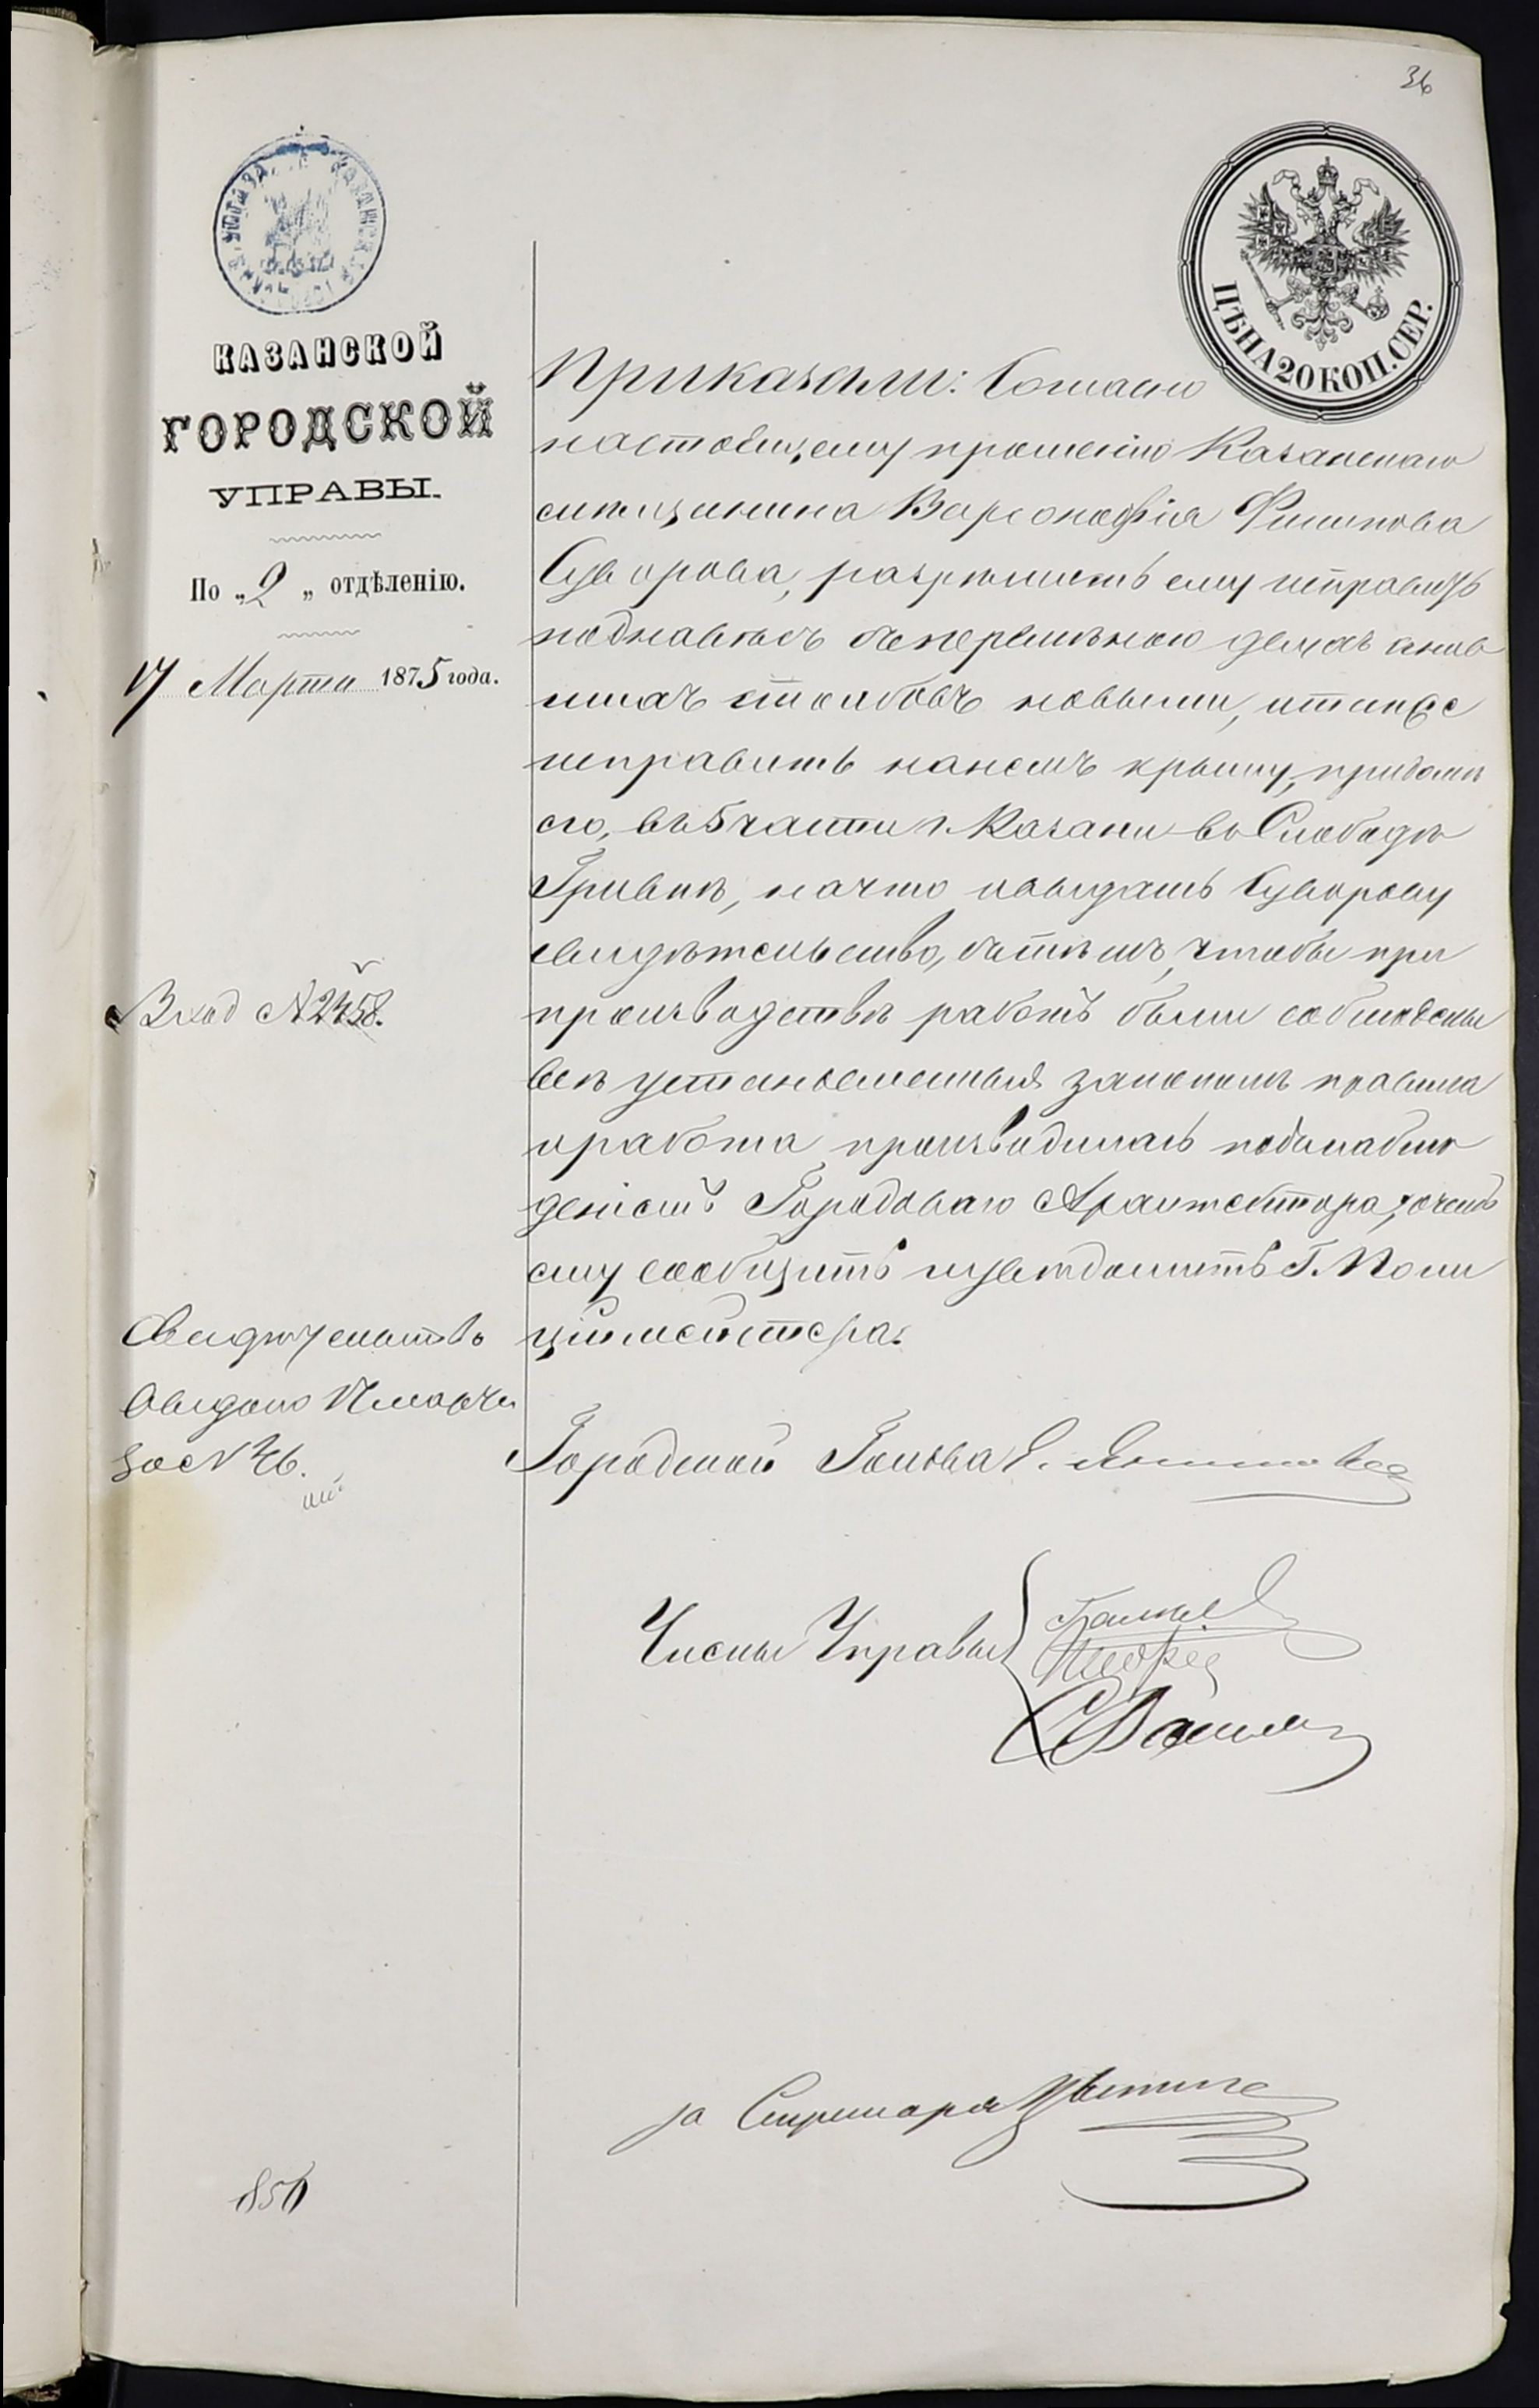 36
КАЗАНСКОЙ
ГОРОДСКОЙ
УПРАВЫ.
По „2„ отдѣленію.
17 Марта 1875 года.
Вход № 2458.
Свидѣтельство
выдано 17 марта
за № 26.
850
ЦѢНА 20 КОП. СЕР.
Приказали: Согласно
настоящему прошенію Казанскаго
мѣщанина Варсонофія Филипова
Суворова, разрѣшить ему исправить
поднавѣсъ съ перемѣною
столбовъ новыми, а также
исправить на немъ крышу, при домѣ
его, въ 5 части г. Казани въ Слободѣ
Гривкѣ, на что и выдать Суворову
свидѣтельство, съ тѣмъ, чтобы при
производствѣ работъ были соблюдены
всѣ установленныя закономъ правила
и работа производилась подъ наблю
деніемъ Городоваго Архитектора, о чемъ
ему сообщить и увѣдомить Г. Поли
ціймейстера.
Городской Голова Э. Янишевскій
Члены Управы
за Секретаря